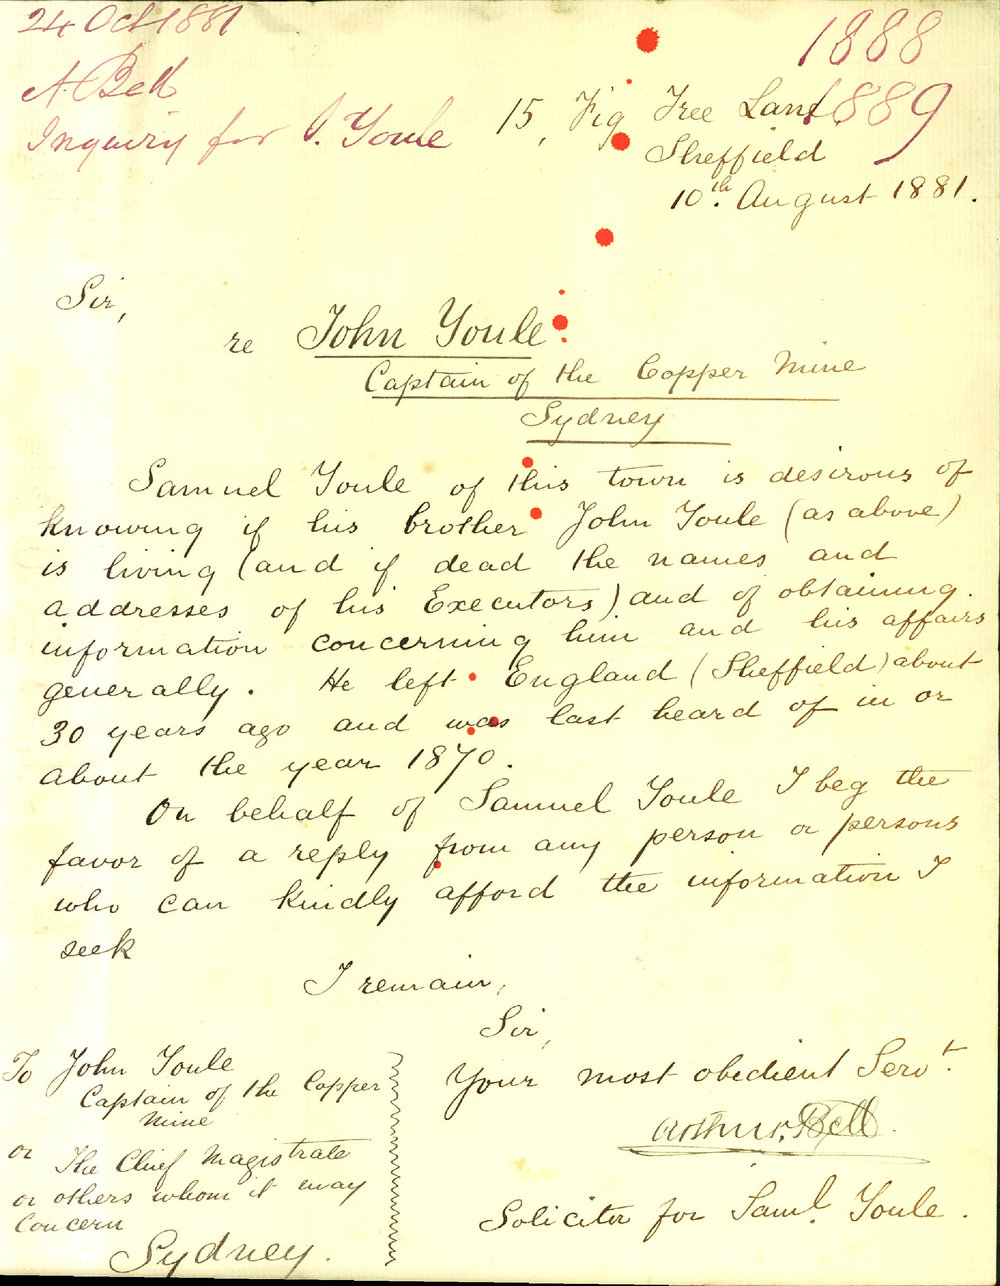 24 Oct 1881
1888
A. Bell
1889
Inquiry for J. Youle
15, Fig Tree Lane
Sheffield
10th. August 1881.
Sir,
re John Youle
Captain of the Copper Mine
Sydney
Samuel Youle of this town is desirous of
knowing if his brother John Youle (as above)
is living (and if dead the names and
addresses of his Executors) and of obtaining
information concerning him and his affairs
generally. He left England (Sheffield) about
30 years ago and was last heard of in or
about the year 1870.
On behalf of Samuel Youle I beg the
favor of a reply from any person or persons
who can kindly afford the information I
seek
I remain,
Sir,
Your most obedient Servt.
Arthur Bell
Solicitor for Saml. Youle.
To John Youle
Captain of the Copper
Mine
or The Chief Magistrate
or others whom it may
Concern
Sydney.